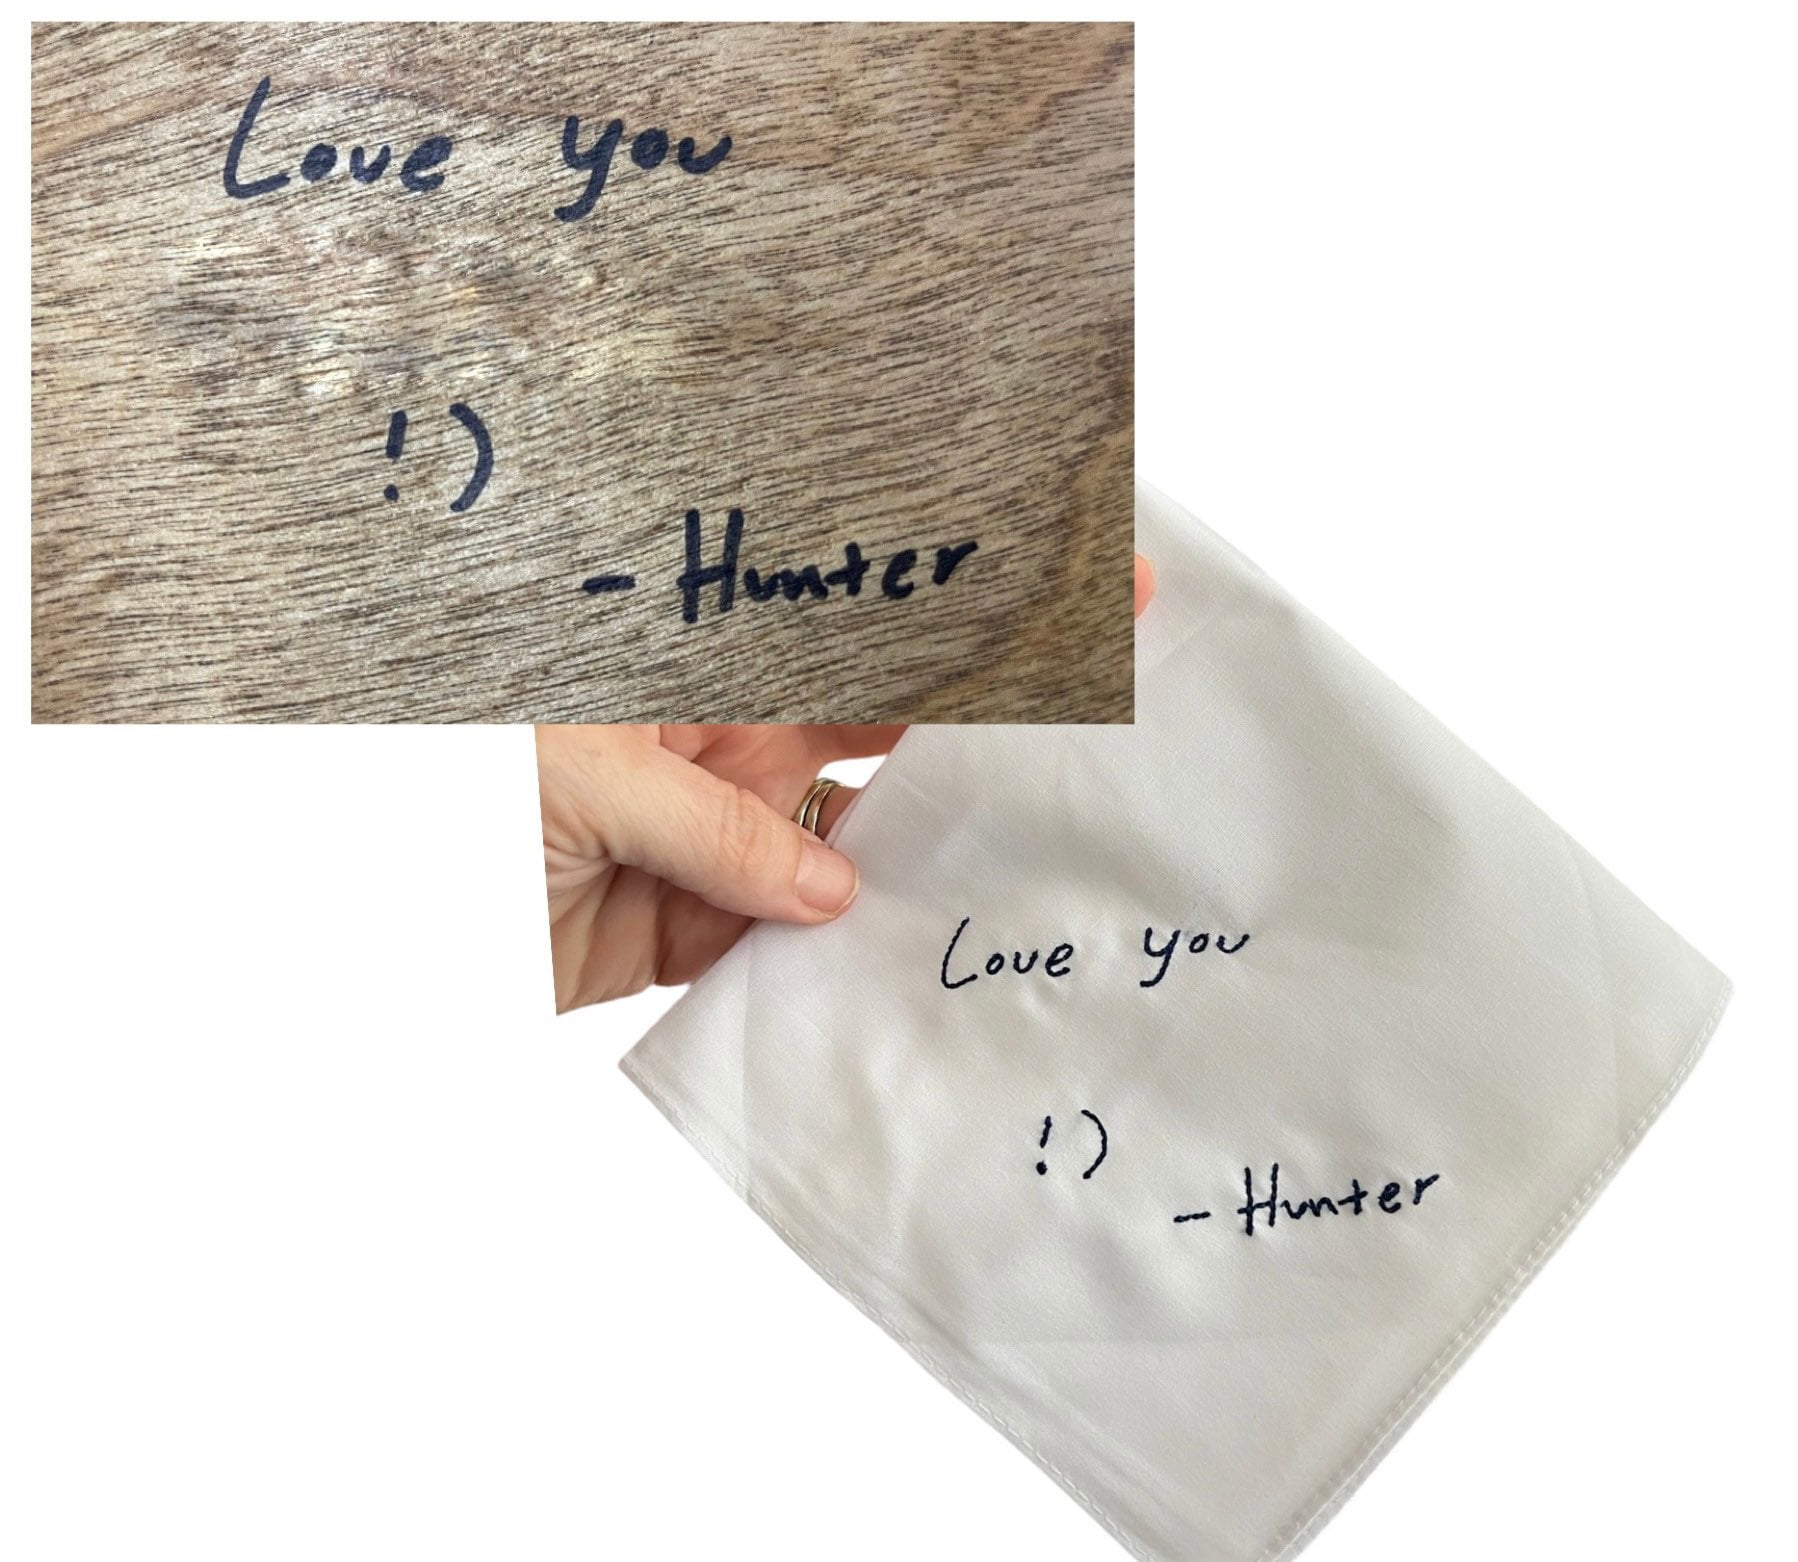 Love you
!)
- Hunter
Love you
!)
- Hunter